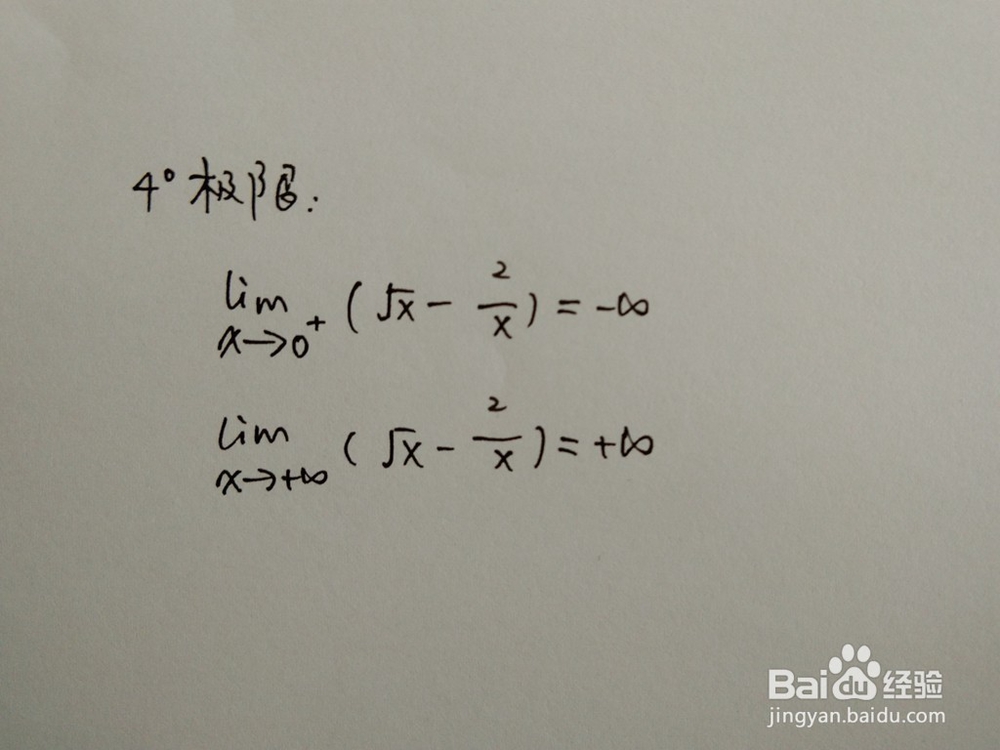 4° 极限:
lim x→0⁺ (√x - 2/x) = -∞
lim x→+∞ (√x - 2/x) = +∞
Baidu 经验
jingyan.baidu.com